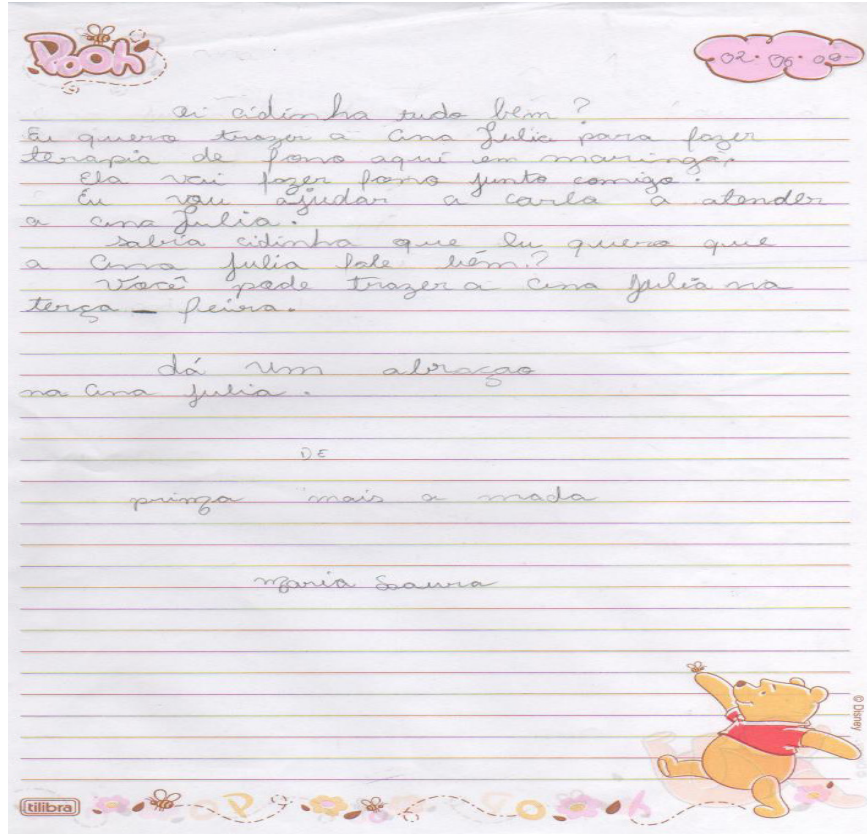 Pooh
02.06.09
oi cidinha tudo bem ?
Eu quero trazer a Ana Julia para fazer
terapia de fono aqui em maringá.
Ela vai fazer fono junto comigo.
Eu vou ajudar a carla a atender
a Ana Julia.
sabia cidinha que eu quero que
a Ana Julia fale bém.?
Você pode trazer a Ana Julia na
terça - feira.
dá um abraçao
na Ana Julia.
DE
prinza mais a mada
Maria Laura
© Disney
tilibra